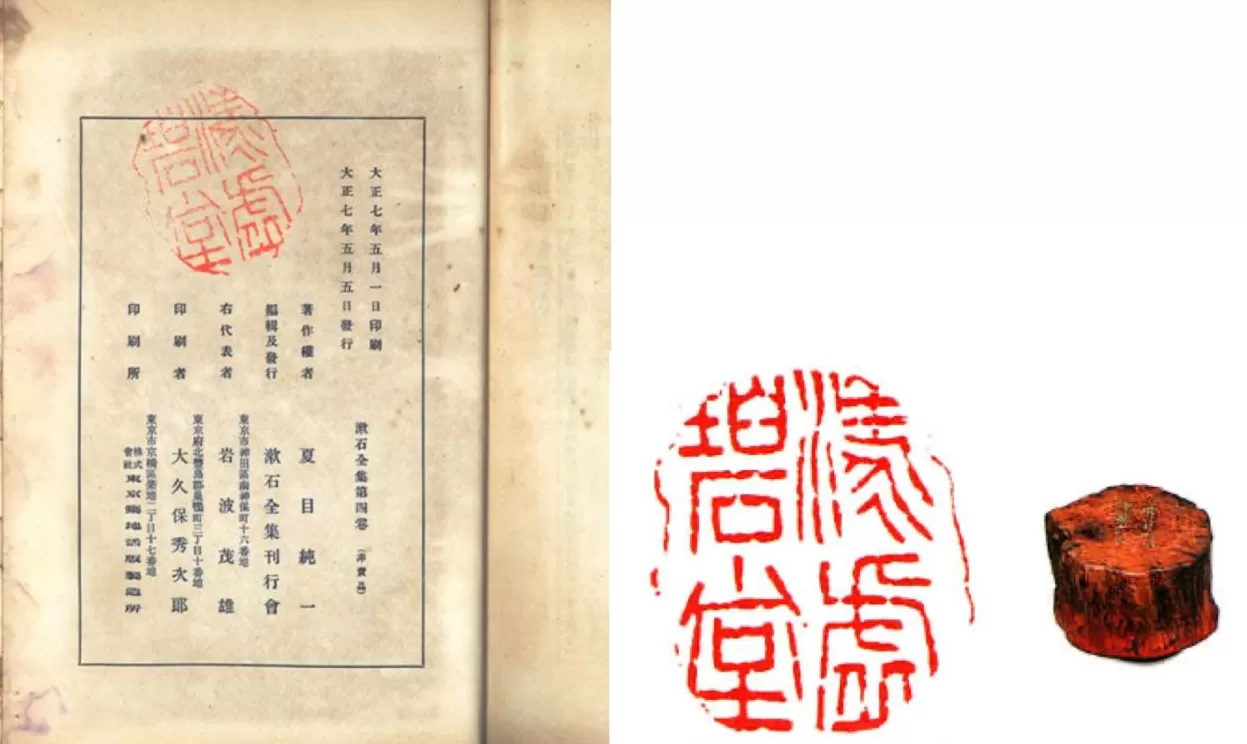 漾虚
碧堂
大正七年五月一日印刷
大正七年五月五日發行
漱石全集第四卷（非賣品）
著作權者 夏目純一
編輯及發行 漱石全集刊行會
東京市神田區南神保町十六番地
右代表者 岩波茂雄
東京府北豐島郡巢鴨町三丁目十番地
印刷者 大久保秀次郎
東京市京橋區築地二丁目十七番地
印刷所 株式會社東京築地活版製造所
漾虚
碧堂